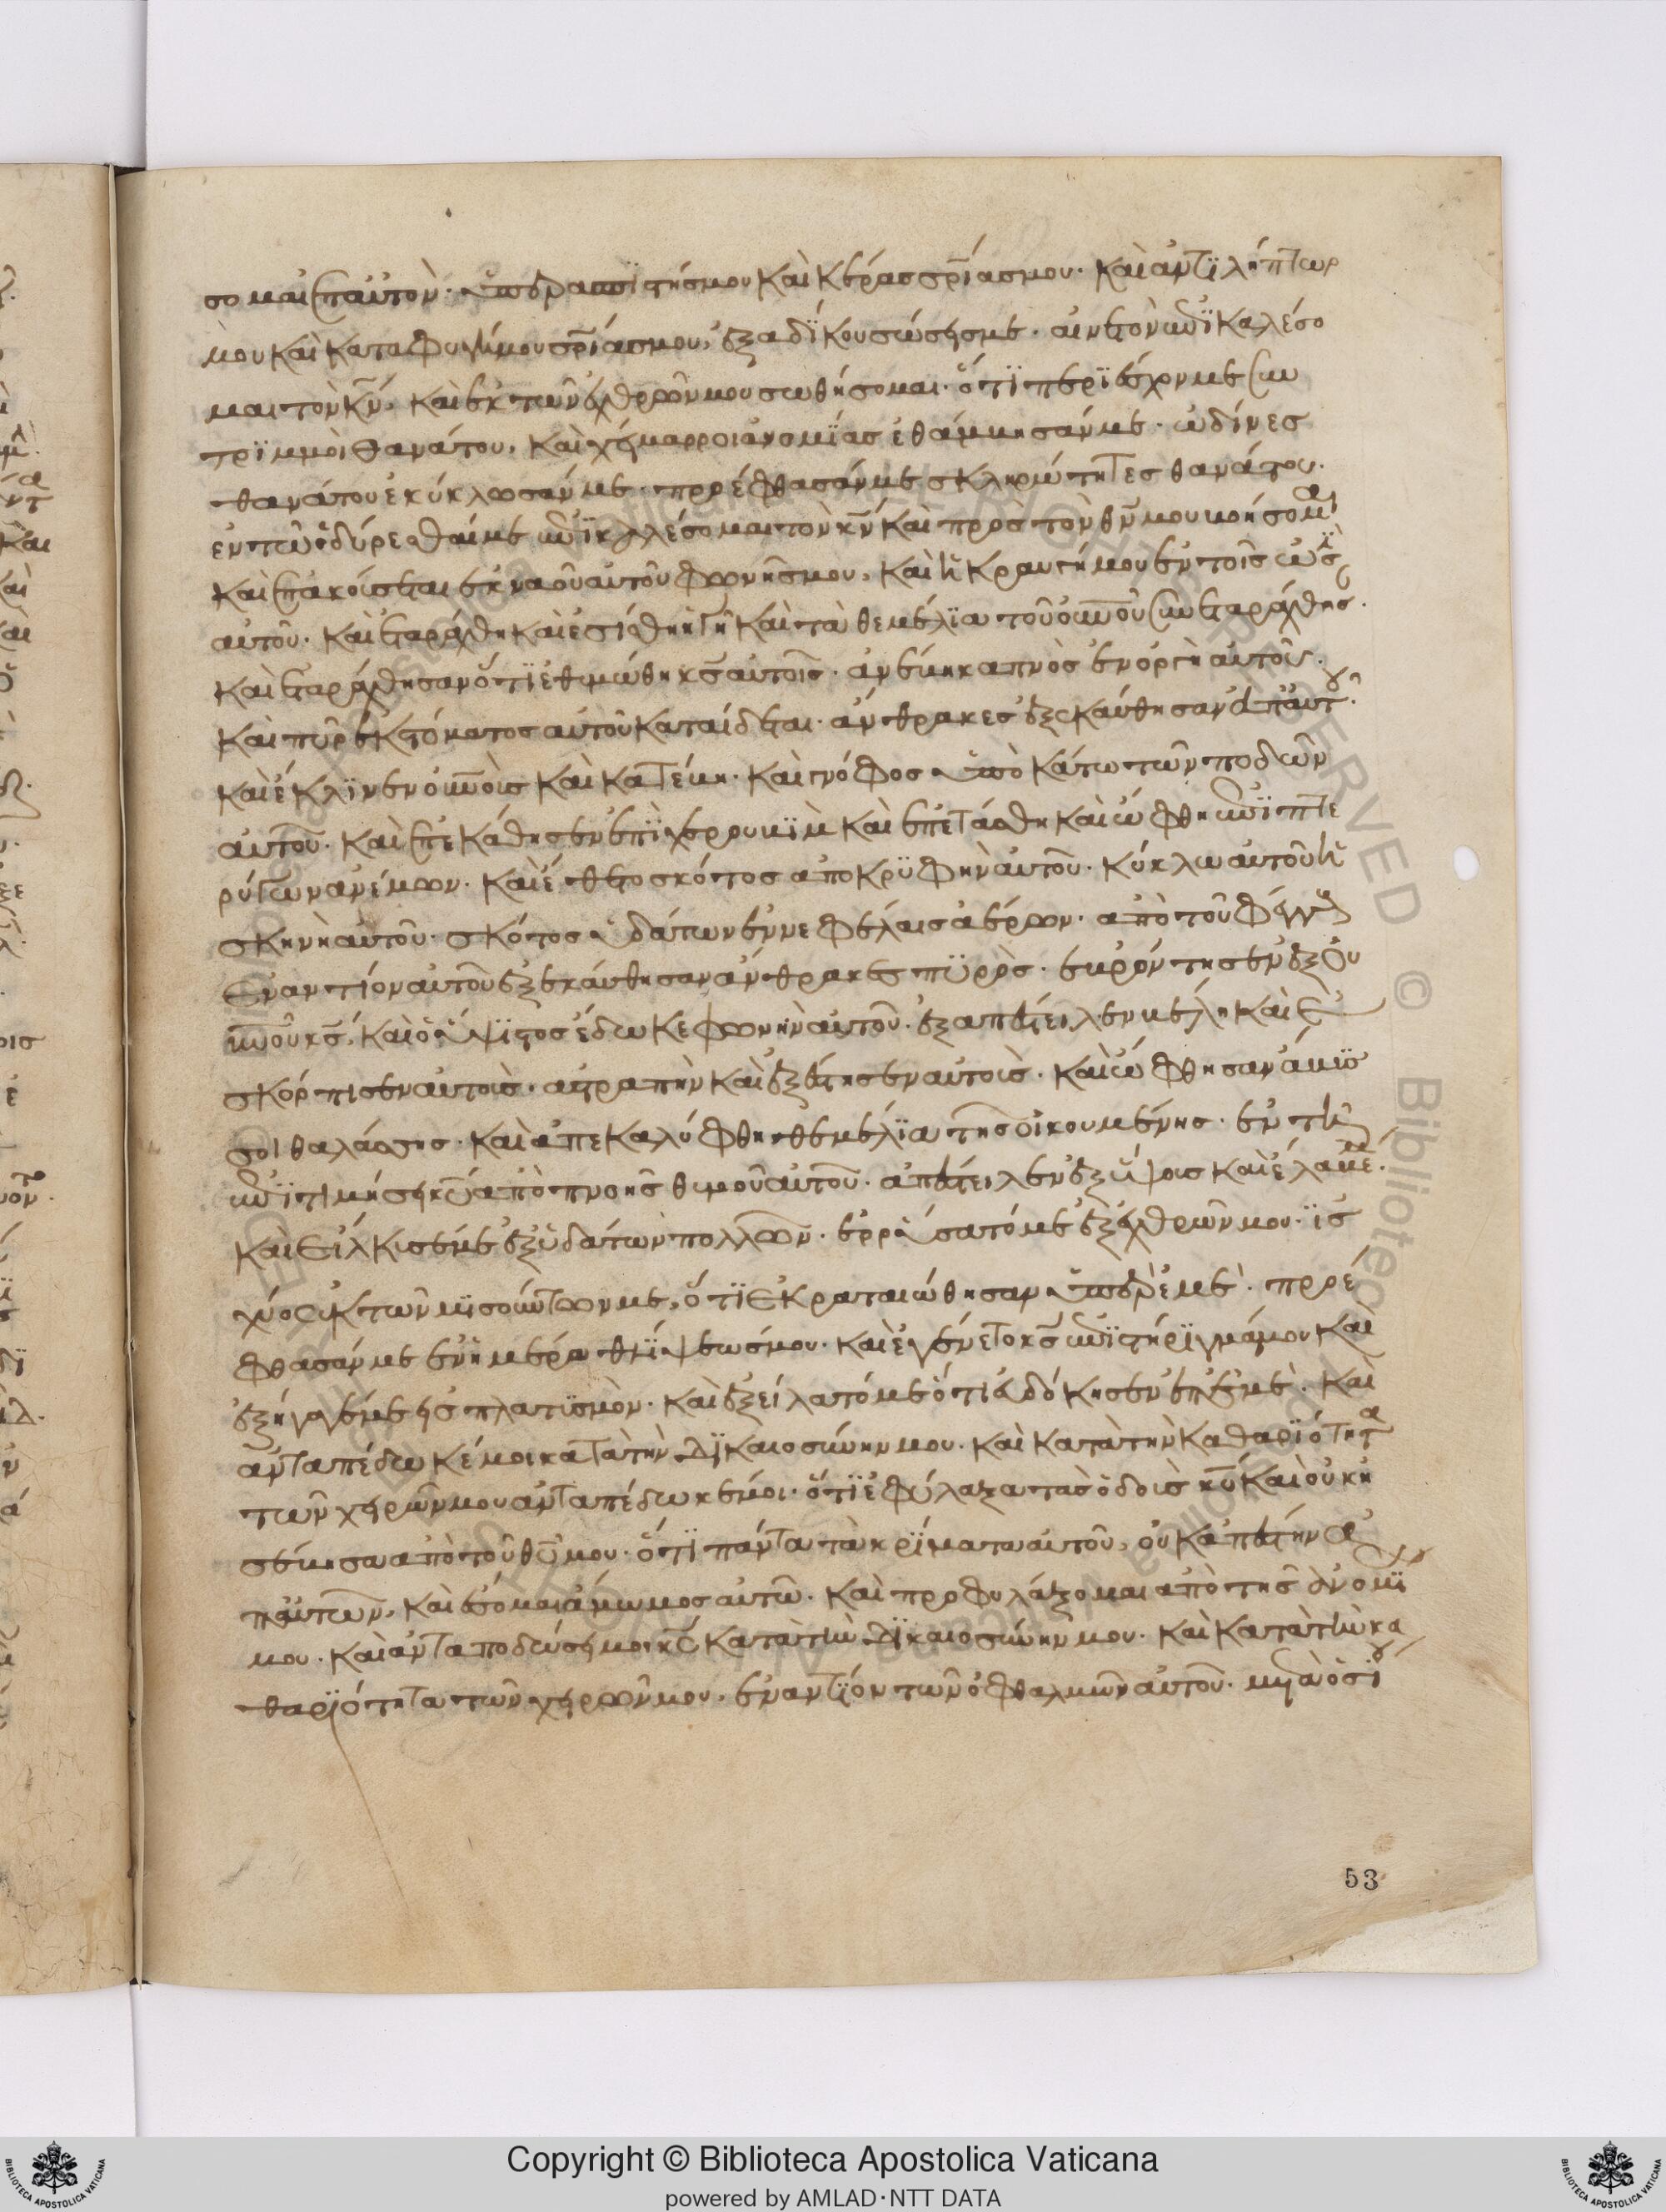 σομαι ἐπ αὐτόν· ὑπερασπϊστήσμου καὶ κέρασ σρϊασμου· καὶ ἀντϊλήπτωρ
μου καὶ καταφυγήμου σρϊασμου, ἐξ αδϊκου σώσησ με· αἰνετὸν ἐπϊκαλέσο
μαι τὸν κν̄, καὶ ἐκ τῶν ἐχθρῶν μου σωθήσομαι· ὅτϊ περϊέσχον με συν
τρϊμμοὶ θανάτου, καὶ χείμαρροι ἀνομϊασ ἐθάμβησάν με· ὠδίνεσ
θανάτου ἐκύκλωσάν με· προέφθασάν με σκληρώτητεσ θανάτου·
ἐν τῶ θλίβεσθαί με ἐπϊκαλέσομαι τὸν κν̄ καὶ πρὸσ τὸν θν̄ μου βοήσομαι
καὶ ἐπακούσεται ἐκ ναοῦ αὐτοῦ φωνῆσ μου, καὶ ἡ κραυγή μου ἐν τοῖσ ὠσϊ
αὐτοῦ· καὶ ἐταράχθη καὶ ἐσείσθη ἡ γῆ καὶ τὰ θεμέλϊα τοῦ οὐνοῦ συνεταράχθησ·
καὶ ἐταράχθησαν ὅτϊ ἐθυμώθη κσ̄ αὐτοῖσ· ἀνέβη καπνὸσ ἐν ὀργῆ αὐτοῦ·
καὶ πῦρ ἐκ στόματοσ αὐτοῦ κατέδεται· ἄνθρακεσ ἐξεκαύθησαν ἀπ αὐτοῦ·
καὶ ἔκλϊνεν οὐνοὺσ καὶ κατέβη· καὶ γνόφοσ ὑπὸ κάτω τῶν ποδῶν
αὐτοῦ· καὶ ἐπεκάθησεν ἐπϊ χερουβϊμ καὶ ἐπετάσθη καὶ ὤφθη ἐπϊ πτε
ρύγων ἀνέμων· καὶ ἔθετο σκότοσ ἀποκρϋφὴν αὐτοῦ· κύκλω αὐτοῦ ἡ
σκηνὴ αὐτοῦ· σκότοσ ὑδάτων ἐν νεφέλαισ ἀέρων· ἀπὸ τοῦ φέγγουσ
ἐναντίον αὐτοῦ ἐξεκαύθησαν ἄνθρακεσ πϋρὸσ· ἐβρόντησεν ἐξ οὐ
νοῦ κσ̄, καὶ ὁ ὕψϊστοσ ἔδωκε φωνὴν αὐτοῦ· ἐξαπέστειλεν βέλη καὶ ἐ
σκόρπισεν αὐτοὺσ· ἀστραπὴν καὶ ἐξέστησεν αὐτοὺσ· καὶ ὤφθησαν ἄβϋσ
σοι θαλάσσησ· καὶ ἀπεκαλύφθη θεμέλϊα τῆσ οἰκουμένησ· ἐν τῆ
ἐπϊτιμήσει κῡ ἀπὸ πνοῆσ θυμοῦ αὐτοῦ· ἀπέστειλεν ἐξ ὕψουσ καὶ ἔλαβέ με·
καὶ εἵλκισέν με ἐξ ὑδάτων πολλῶν· ἐρρύσατό με ἐξ ἐχθρῶν μου· ϊσ
χύοσ ἐκ τῶν μϊσούντων με, ὅτϊ ἐκραταιώθησαν ὑπὲρ ἐμὲ· προέ
φθασάν με ἐν ἡμέρα θλϊψεωσ μου· καὶ ἐγένετο κσ̄ ἐπϊστήρϊγμά μου καὶ
ἐξήγαγέν με εἰσ πλατϋσμὸν· καὶ ἐξείλατό με ὅτι εὐδόκησεν ἐν ἐμὲ· καὶ
ἀνταπέδωκέ μοι κατὰ τὴν δϊκαιοσύνην μου· καὶ κατὰ τὴν καθαρϊότητα
τῶν χειρῶν μου ἀνταπέδωκέ μοι· ὅτϊ ἐφύλαξα τὰσ ὁδοὺσ κῡ καὶ οὐκ ἠ
σέβησα ἀπὸ τοῦ θῡ μου· ὅτϊ πάντα τὰ κρϊματα αὐτοῦ, οὐκ ἀπέστην ἀ
π αὐτῶν, καὶ ἔσομαι ἄμωμοσ αὐτῶ· καὶ προφυλάξομαι ἀπὸ τῆσ ἀνομϊασ
μου· καὶ ἀνταποδώσει μοι κσ̄ κατὰ τὴν δϊκαιοσύνην μου· καὶ κατὰ τὴν κα
θαρϊότητα τῶν χειρῶν μου, ἐναντϊόν τῶν ὀφθαλμῶν αὐτοῦ· μετὰ ὁσϊου
53
Copyright © Biblioteca Apostolica Vaticana
powered by AMLAD·NTT DATA